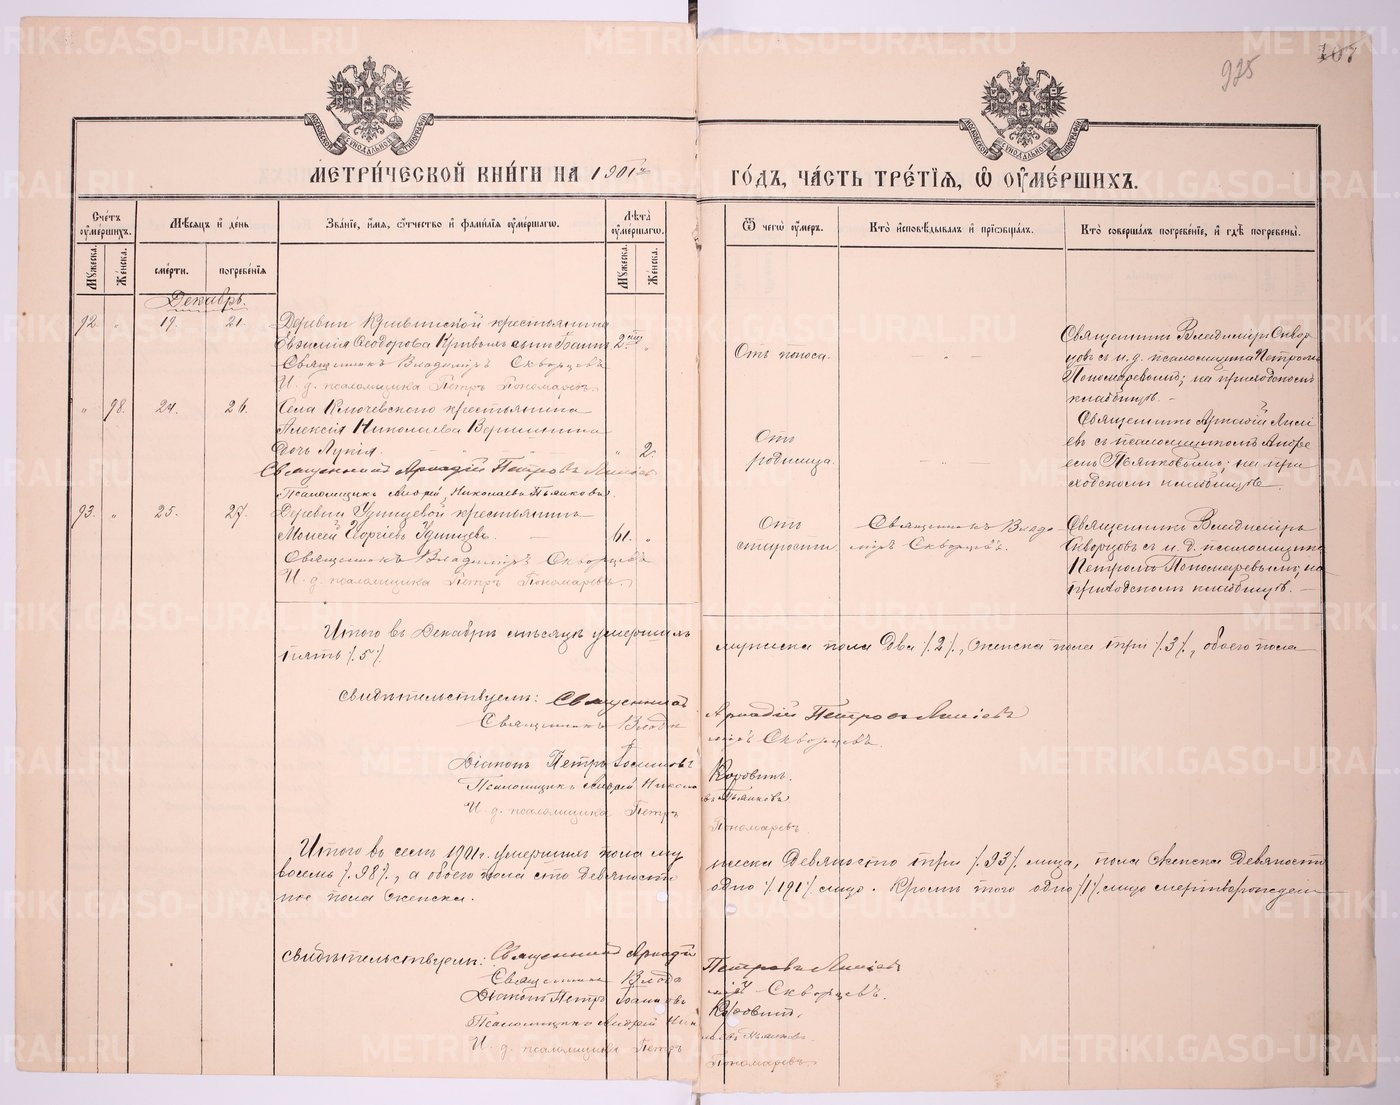 METRIKI.GASO-URAL.RU
925
107
МОСКОВСКОЙ СѴНОДАЛЬНОЙ ТИПОГРАФІИ
МЕТРИ́ЧЕСКОЙ КНИ́ГИ НА 1901й
ГО́ДЪ, ЧА́СТЬ ТРЕ́ТІЯ, Ѡ҆ ОУ҆МЕ́РШИХЪ.
Сче́тъ оу҆ме́ршихъ.
Мѣ́сяцъ и҆ де́нь
Зва́ніе, и҆́мя, ѻ҆́тчество и҆ фами́лія оу҆ме́ршагѡ.
Лѣ́та оу҆ме́ршагѡ.
Ѿ чегѡ̀ оу҆́меръ.
Кто̀ и҆сповѣ́дывалъ и҆ прїѡбща́лъ.
Кто̀ соверша́лъ погребе́ніе, и҆ гдѣ̀ погребены̀.
Му́жеска.
Же́нска.
сме́рти.
погребе́нія
Му́жеска.
Же́нска.
Декабрь.
92 " 19. 21. Деревни Кривинской крестьянина
Евфимія Ѳеодорова Кривыхъ сынъ Іоаннъ 2 "
Священникъ Владиміръ Скворцовъ
И. д. псаломщика Петръ Пономаревъ.
Отъ поноса.
Священникъ Владиміръ Сквор
цовъ съ и. д. псаломщика Петромъ
Пономаревымъ; на приходскомъ
кладбищѣ. -
" 98. 24. 26. Села Ключевского крестьянина
Алексія Николаева Вершинина
дочь Лукія. " 2.
Священникъ Аркадій Петровъ Линіевъ
Псаломщикъ Андрей Николаевъ Пьянковъ.
Отъ
родимца.
Священникъ Аркадій Лині
евъ съ псаломщикомъ Андре
емъ Пьянковымъ; на при
ходскомъ кладбищѣ.
93. " 25. 27. Деревни Удинцевой крестьянинъ
Моисей Георгіевъ Удинцевъ. 61. "
Священникъ Владиміръ Скворцовъ
И. д. псаломщика Петръ Пономаревъ.
Отъ
старости.
Священникъ Влади
міръ Скворцовъ.
Священникъ Владиміръ
Скворцовъ съ и. д. псаломщика
Петромъ Пономаревымъ; на
приходскомъ кладбищѣ. -
Итого въ Декабрѣ мѣсяцѣ умершихъ мужеска пола два /.2/., женска пола три /.3/., обоего пола
пять /.5/.
Свидѣтельствуемъ: Священникъ Аркадій Петровъ Линіевъ
Священникъ Владиміръ Скворцовъ.
Діаконъ Петръ Іоанновъ Коровинъ.
Псаломщикъ Андрей Николаевъ Пьянковъ
И. д. псаломщика Петръ Пономаревъ.
Итого въ семъ 1901 г. умершихъ пола мужеска девяносто три /.93/. лица, пола женска девяносто
восемь /.98/., а обоего пола сто девяносто одно /.191/. лицо. Кромѣ того одно /1/. лицо мертворожден
ное пола женска.
Свидѣтельствуемъ: Священникъ Аркадій Петровъ Линіевъ
Священникъ Владиміръ Скворцовъ.
Діаконъ Петръ Іоанновъ Коровинъ.
Псаломщикъ Андрей Николаевъ Пьянковъ
И. д. псаломщика Петръ Пономаревъ.